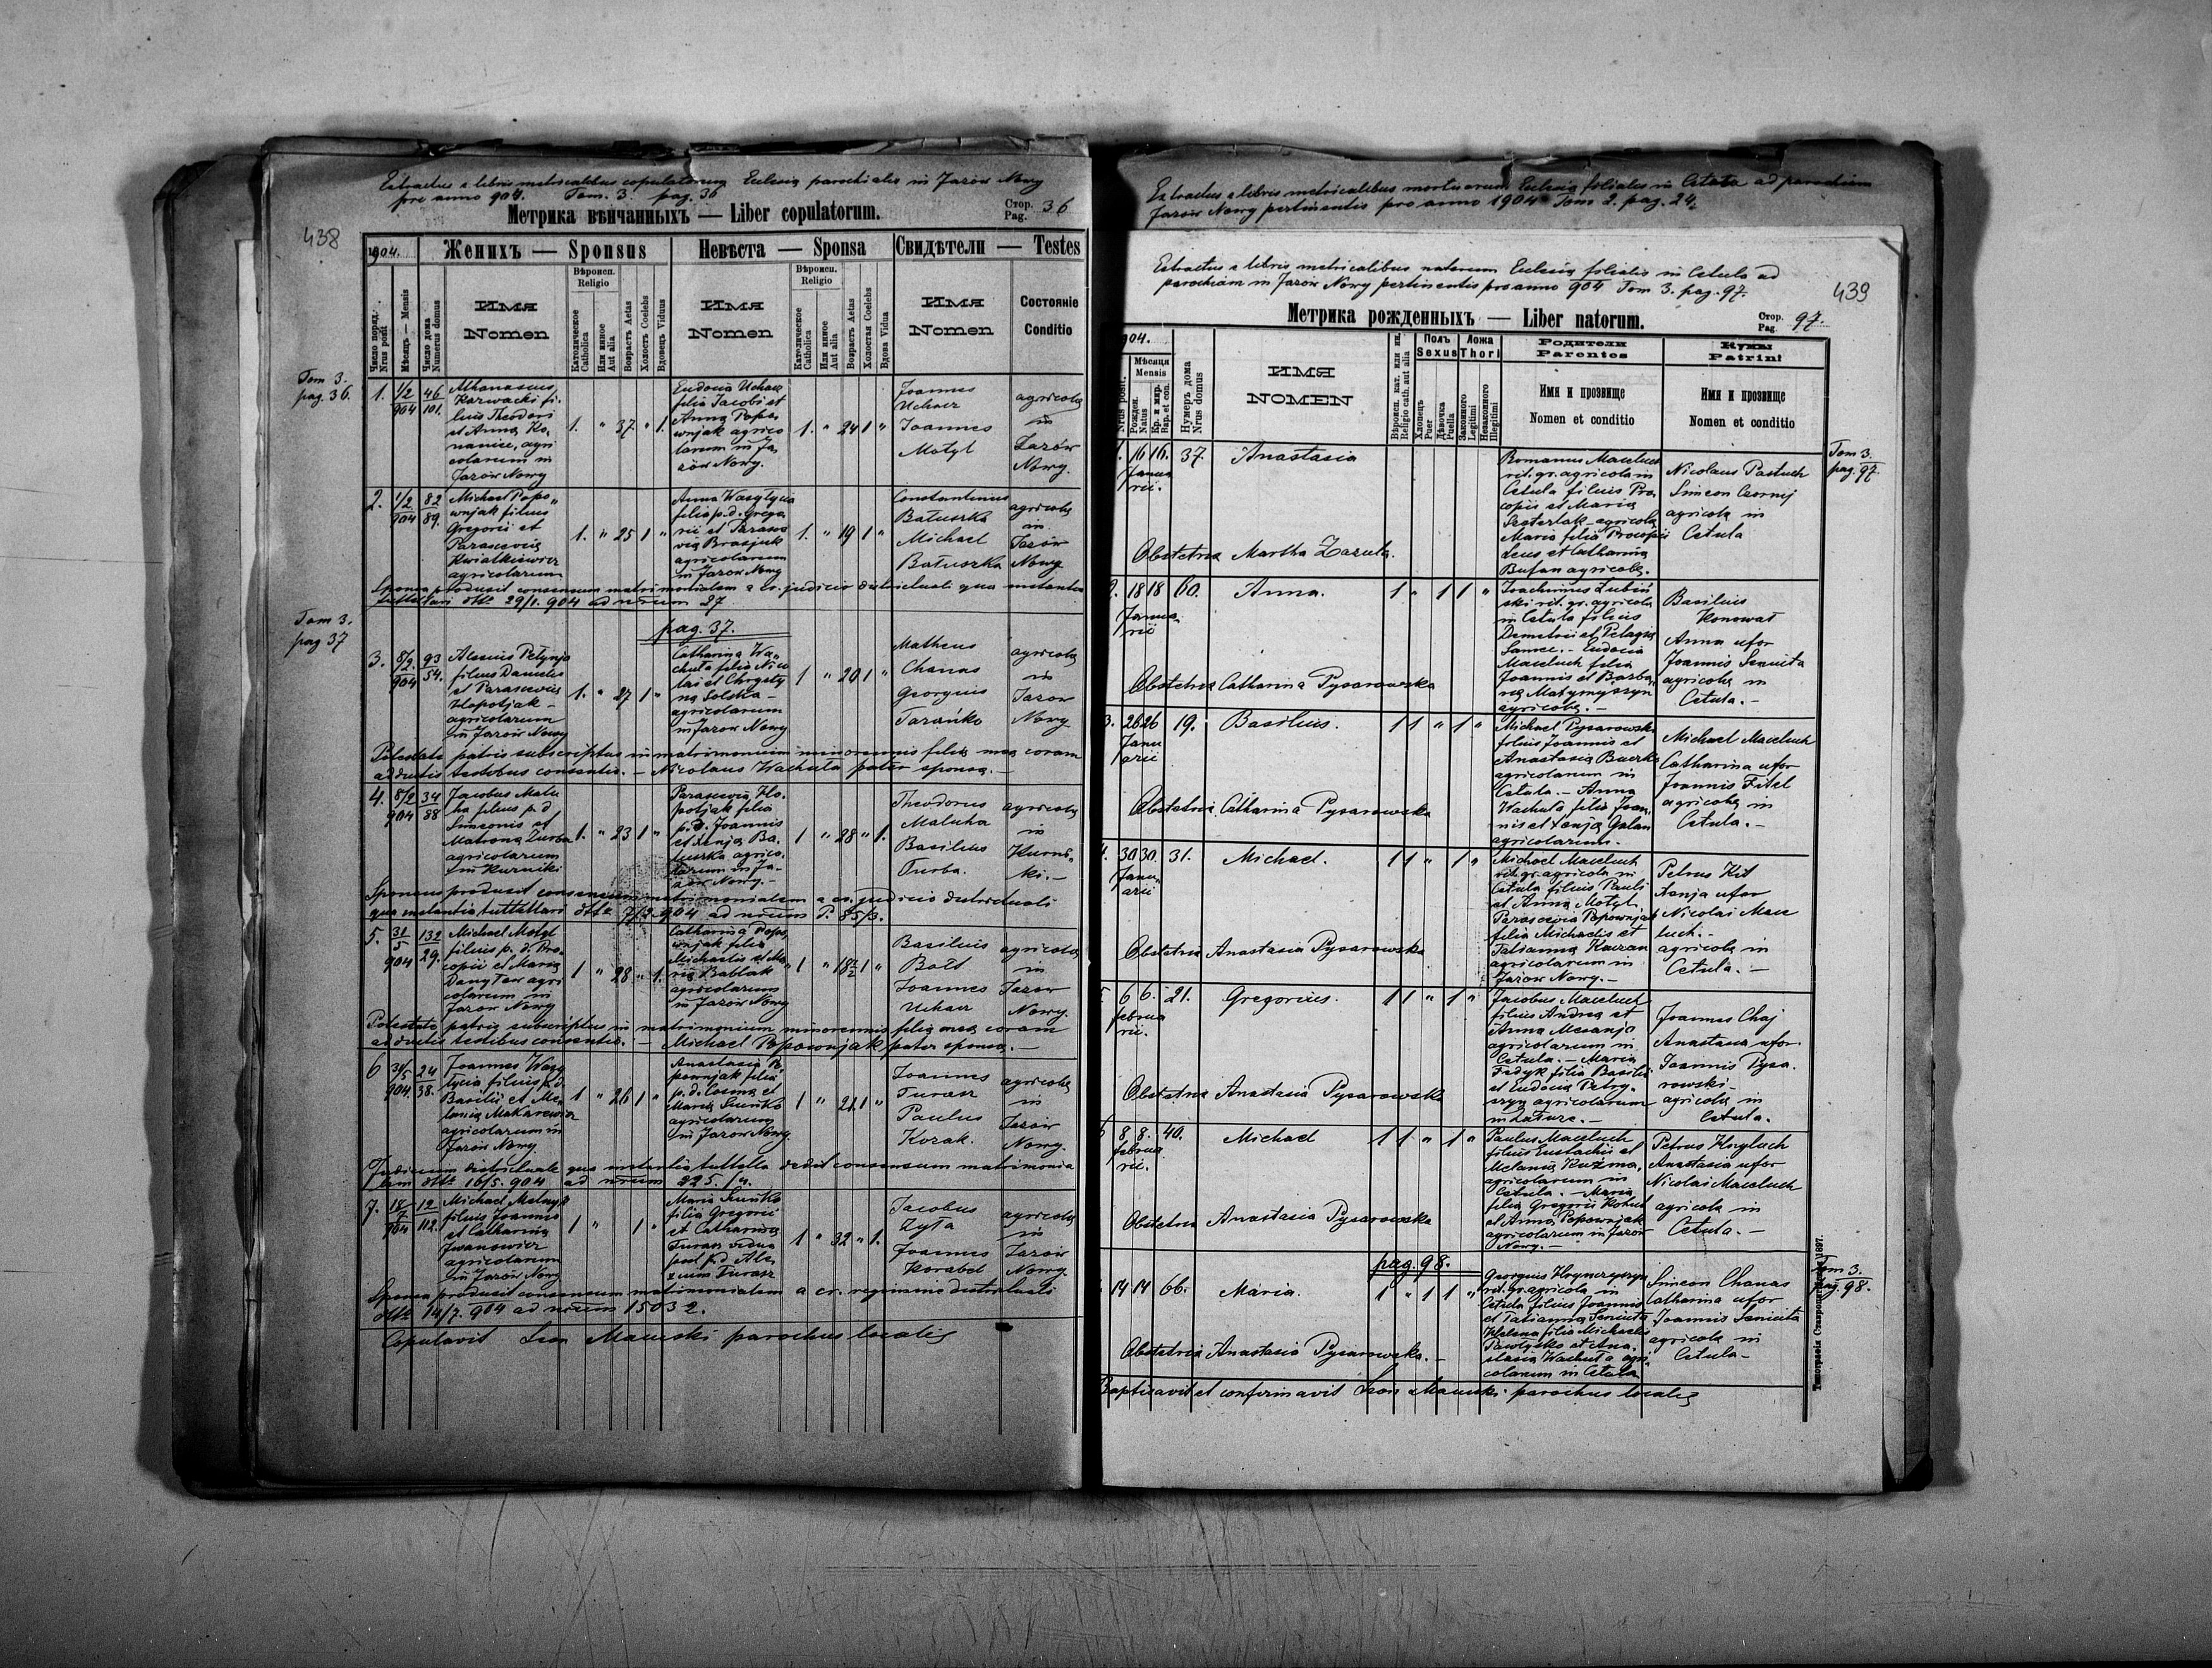 Extractus e libris metricalibus copulatorum Eclesię parochialis in Jazów Nowy
pro anno 904. Tom. 3. pag. 36
Метрика вѣнчанныхъ — Liber copulatorum.
Стор. Pag. 36
438
1904.
Женихъ — Sponsus
Невѣста — Sponsa
Свидѣтели — Testes
Число поряд. Nrus posit
Мѣсяцъ — Mensis
Число дома Numerus domus
ИМЯ Nomen
Вѣроисп. Religio
Католическое Catholica
Или инное Aut alia
Возрастъ Aetas
Холостъ Coelebs
Вдовецъ Viduus
ИМЯ Nomen
Вѣроисп. Religio
Католическое Catholica
Или инное Aut alia
Возрастъ Aetas
Холостая Coelebs
Вдова Vidua
ИМЯ Nomen
Состояніе Conditio
Tom 3.
pag. 36.
1. 1/2 904 46 101.
Athanasius
Karwacki fi-
lius Theodori
et Anna Ko-
nanice, agri
colarum in
Jazów Nowy
1. " 37 " 1.
Eudocia Uchacz
filia Jacobi et
Anna Popo-
wnjak agrico
larum in Ja
zów Nowy.
1. " 24 1 "
Joannes
Uchacz
Joannes
Motyl
agricolę
in
Jazów
Nowy.
2. 1/2 904 82 89.
Michael Popo
wnjak filius
Gregorii et
Parascevię
Kwiatkiewicz
agricolarum
1. " 25 1 "
Anna Wasylycia
filia p. d. Grego
rii et Parasce
via Brasjuk
agricolarum
in Jazów Nowy
1. " 19 1 "
Constantinus
Batuszka
Michael
Batuszka
agricolę
in
Jazów
Nowy
Sponsa produxit consensum matrimonialem a cr. judicio districtuali qua instantia
tuttelari dtto 29/1. 904 ad nrum 27
Tom 3.
pag 37
pag. 37.
3. 8/2 904 93 54.
Alexius Petynja
filius Danielis
et Parascevię
Hlopotjak -
agricolarum
in Jazów Nowy
1. " 27 1 "
Catharina Wa
chuta filia Nico
lai et Chrysty
na Solska -
agricolarum
in Jazow Nowy
1 " 20 1 "
Matheus
Chanas
Georgius
Tarańko
agricolę
in
Jazow
Nowy
Potestate patris subscriptus in matrimonium minorennis filię meę coram
adductis testibus consentio. - Nicolaus Wachuta pater sponsę. -
4. 8/2 904 34 88
Jacobus Malu
ha filius p. d
Simeonis et
Matrona Turba
agricolarum
in Kurniki
1. " 23 1 "
Parascevia Hlo
potjak filia
p. d. Joannis
et Xenja Ba
tuszka agrico
larum in Ja
zów Nowy. -
1 " 28 " 1.
Theodorus
Maluha
Basilius
Turba.
agricolę
in
Kurni-
ki. -
Sponsus produxit consensum matrimonialem a cr. judicio districtuali
qua instantia tuttellari dtto 7/2 904 ad nrum P. 85/3.
5. 31/5 904 132 29.
Michael Motyl
filius p. d. Pro
copii et Maria
agri
colarum in
Jazow Nowy
1 " 28 " 1.
Catharina Popo
wnjak filia
Michaelis et Ma
ria Bablak
agricolarum
in Jazów Nowy
1 " 18 1 "
Basilius
Bolt
Joannes
Uchacz
agricolę
in
Jazow
Nowy.
Potestate patris subscriptus in matrimonium minorennis filię meę coram
adductis testibus consentio. - Michael Popownjak pater sponsę. -
6 31/5 904. 24 38.
Joannes Wasy
lycia filius p. d.
Basilii et Me
lania Makarewicz
agricolarum in
Jazów Nowy
1 " 26 1 "
Anastasia Po
pownjak filia
p. d. Cosmę et
Maria Suńko
agricolarum
in Jazow Nowy.
1 " 21 1 "
Joannes
Turasz
Paulus
Kozak.
agricolę
in
Jazów
Nowy.
Judicium districtuale qua instantia tuttella dedit consensum matrimonia
lem dtto 16/5. 904 ad nrum 225. /4.
7. 904 12 112.
Michael Melnyk
filius Joannis
et Catharina
Iwanowicz
agricolarum
in Jazów Nowy
1 " 1 "
Maria Suńko
filia Gregorii
et Catharina
Turasz vidua
post p. d. Ale
xium Turasz
1 " 32 " 1.
Jacobus
Zyła
Joannes
Korabel
agricolę
in
Jazów
Nowy.
Sponsa produxit consensum matrimonialem a cr. regimine districtuali
dtto 14/7. 904 ad nrum 15032.
Copulavit Leon parochus localis
Extractus e libris metricalibus mortuorum Eclesię filialis in Cetula ad parochiam
Jazów Nowy pertinentis pro anno 1904 Tom 2. pag. 24.
Extractus e libris metricalibus natorum Eclesię filialis in Cetula ad
parochiam in Jazów Nowy pertinentis pro anno 904 Tom 3. pag. 97.
439
Метрика рожденныхъ — Liber natorum.
Стор. Pag. 97.
904.
Nrus posit.
Мѣсяця Mensis
Рожден. Natus
Кр. и мир. Bap. et con.
Нумеръ дома Nrus domus
ИМЯ NOMEN
Вѣроисп. кат. или ин. Religio cath. aut alia
Полъ Sexus
Хлопецъ Puer
Дѣвочка Puella
Ложа Thori
Законного Legitimi
Незаконного Illegitimi
Родители Parentes
Имя и прозвище
Nomen et conditio
Кумы Patrini
Имя и прозвище
Nomen et conditio
Tom 3.
pag. 97.
1. 16 16. Janua rii. 37.
Anastasia
Romanus Maceluch
rit. gr. agricola in
Cetula filius Pro
copii et Maria
agricolę
Maria filia Procopii
Leus et Catharina
Bufan agricolę.
Nicolaus Pastuch
Simeon Czornij
agricolę in
Cetula
Obstetrix Martha Zazula.
2. 18 18 Janua rii 60.
Anna.
1 " 1 1 "
Joachimus Lubiń
ski rit. gr. agricola
in Cetula filius
Demetrii et Pelagia
Eudocia
Maceluch filia
Joannis et Barba
ra
agricolę. -
Basilius
Konowal
Anna uxor
Joannis Seniuta
agricolę in
Cetula. -
Obstetrix Catharina Pysarowska
3. 26 26 Janu arii 19.
Basilius.
1 1 " 1 "
Michael Pysarowski
filius Joannis et
Anastasia
agricolarum in
Cetula. - Anna
Wachuta filia Joan
nis et Xenja Galan
agricolarum.
Michael Maceluch
Catharina uxor
Joannis Fitel
agricolę in
Cetula. -
Obstetrix Catharina Pysarowska
4. 30 30. Janu arii 31.
Michael.
1 1 " 1 "
Michael Maceluch
rit. gr. agricola in
Cetula filius Pauli
et Anna Motyl
Parascevia Popownjak
filia Michaelis et
Tatianna
agricolarum in
Jazów Nowy. -
Petrus Kit
Xenja uxor
Nicolai Mace
luch. -
agricolę in
Cetula. -
Obstetrix Anastasia Pysarowska
5. 6 6. februa rii. 21.
Gregorius.
1 1 " 1 "
Jacobus Maceluch
filius Andrea et
Anna
agricolarum in
Cetula. - Maria
Fedyk filia Basilii
et Eudocia Petry-
szyn agricolarum
Joannes Chaj
Anastasia uxor
Joannis Pysa
rowski -
agricolę in
Cetula.
Obstetrix Anastasia Pysarowska
6 8. 8. februa rii. 40.
Michael
1 1 " 1 "
Paulus Maceluch
filius Eustachii et
Melania Kuzma,
agricolarum in
Cetula. - Maria
filia Gregorii Kohut
et Anna Popownjak
agricolarum in Jazów
Nowy. -
Petrus Hnyluch
Anastasia uxor
Nicolai Maceluch
agricolę in
Cetula. -
Obstetrix Anastasia Pysarowska
pag. 98.
Tom 3.
pag. 98.
14 14 66.
Maria.
1 " 1 1 "
Georgius
rit. gr. agricola in
Cetula filius Joannis
et Tatianna Seniuta
Helena filia Michaelis
Pawlysko et Ana
stasia Wachuta agri
colarum in Cetula
Simeon Chanas
Catharina uxor
Joannis Seniuta
agricolę in
Cetula -
Obstetrix Anastasia Pysarowska. -
Baptisavit et confirmavit Leon parochus localis